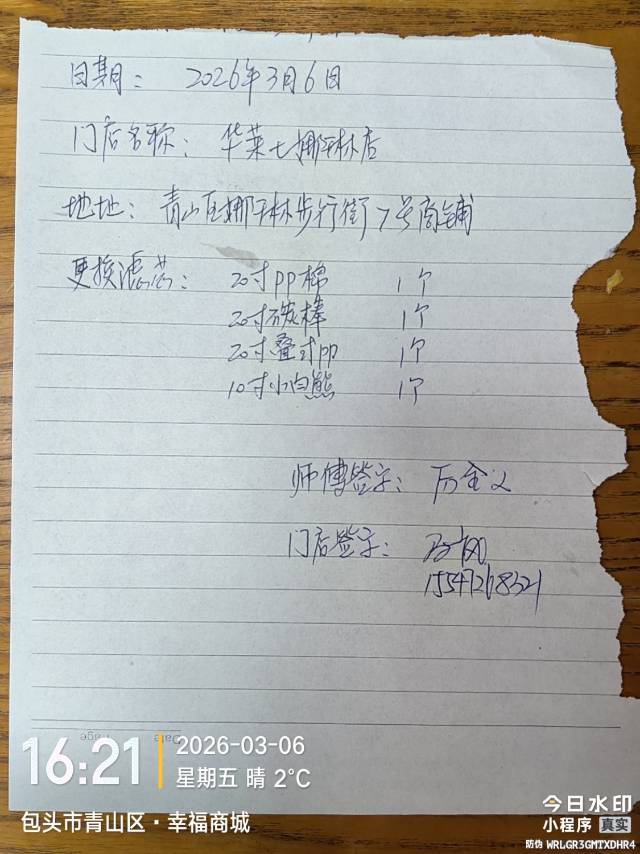 日期： 2026年3月6日
门店名称： 华莱士娜琳店
地址： 青山区娜琳步行街7号商铺
更换滤芯： 20寸pp棉 1个
20寸碳棒 1个
20寸叠式pp 1个
10寸小白熊 1个
师傅签字： 历金义
门店签字：
Date Page
16:21
2026-03-06
星期五 晴 2℃
包头市青山区·幸福商城
今日水印
小程序 真实
防伪 WRLGR3GMTXDHR4